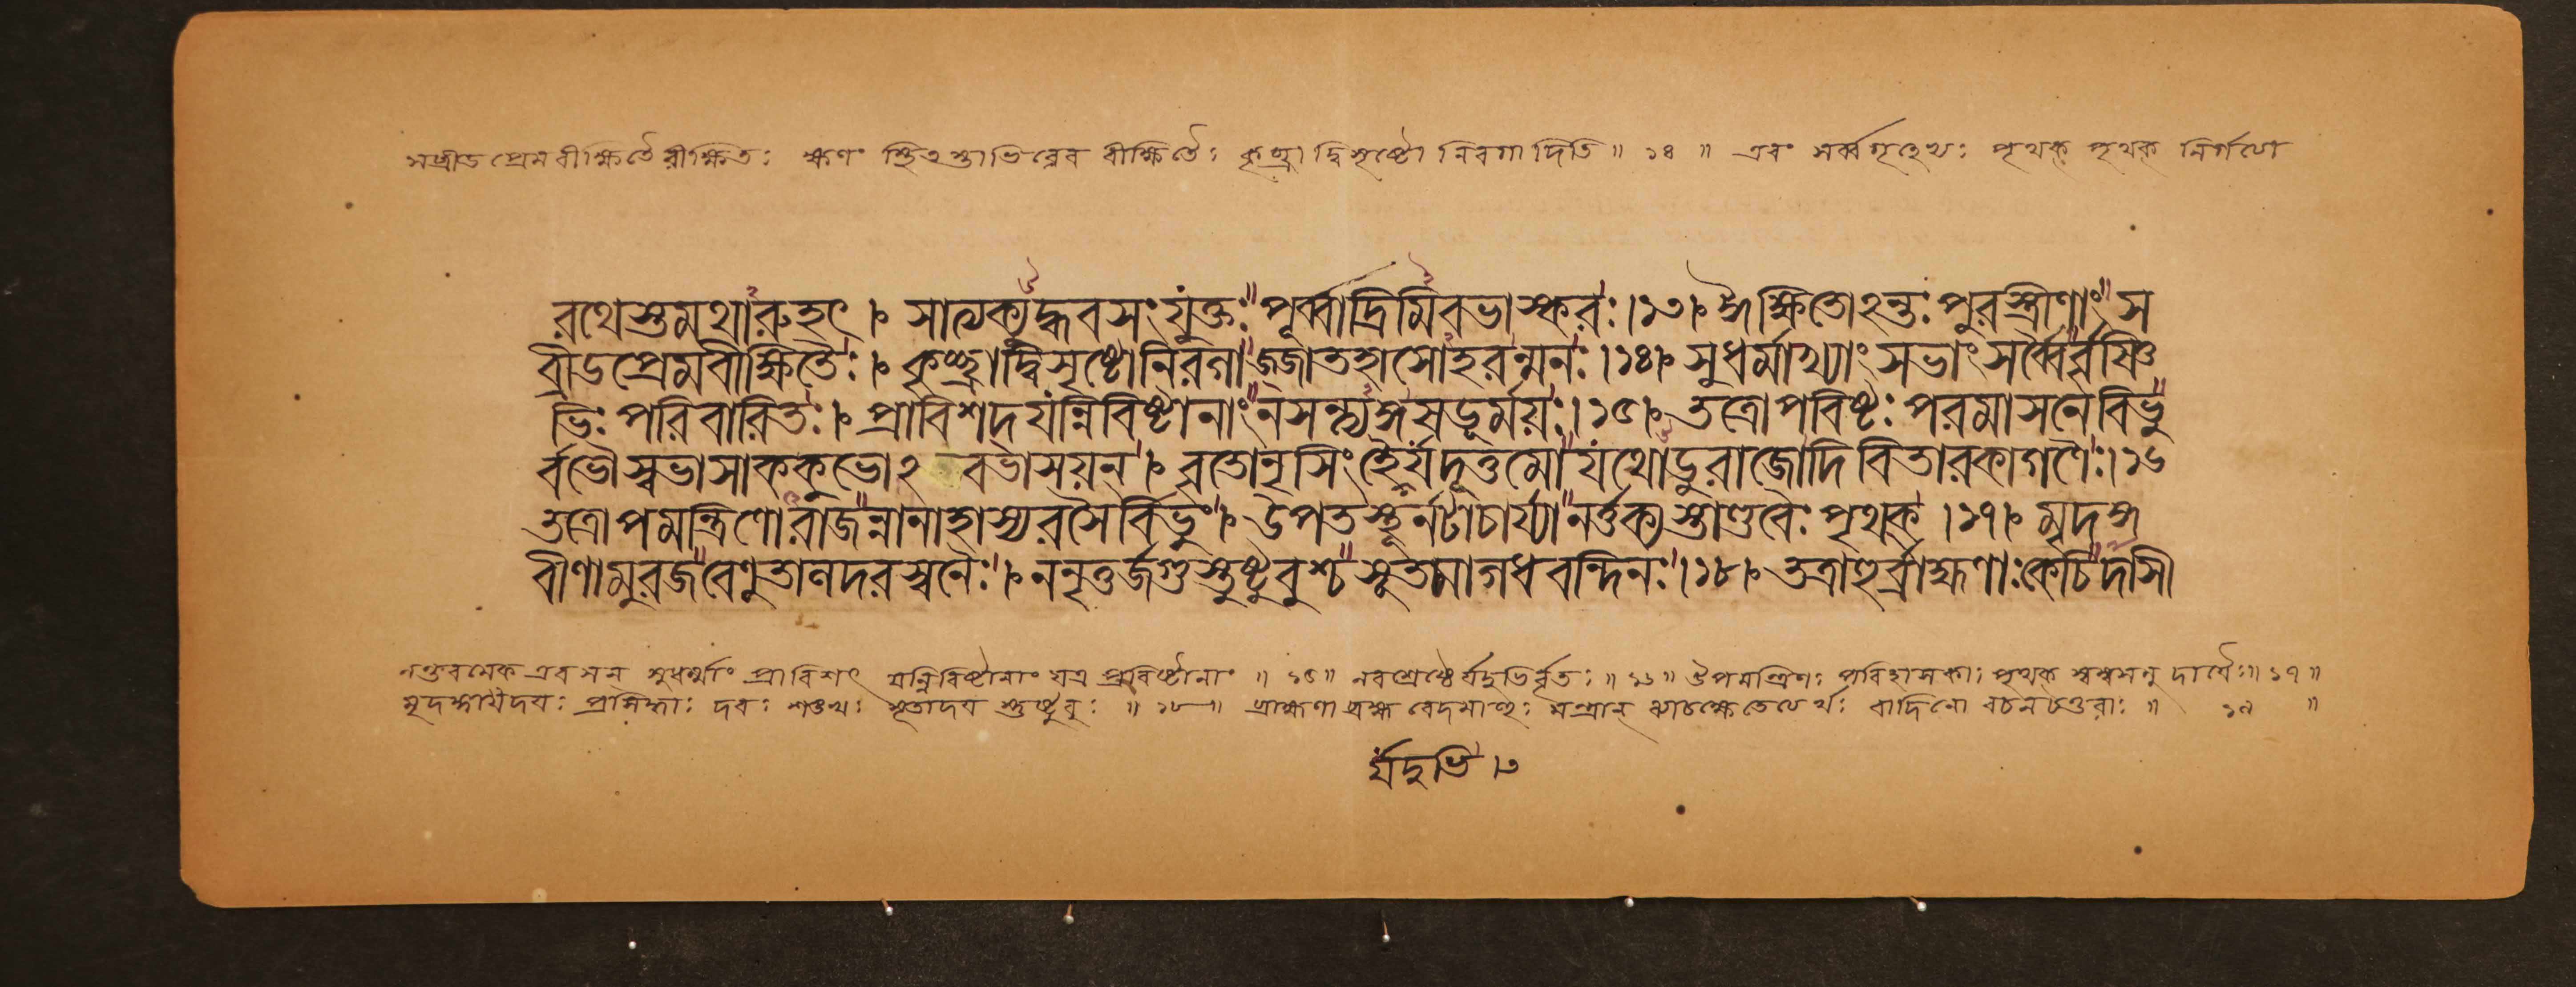 সব্রীড প্রেমবীক্ষিতৈ র্বীক্ষিতঃ ক্ষণং স্থিত্বা তাভিরেব বীক্ষিতৈঃ কৃচ্ছ্রা দ্বিসৃষ্টো নিরগা দিতি ॥ ১৪ ॥ এবং সর্ব্বগৃহেভ্যঃ পৃথক্ পৃথক্ নির্গতো
রথেস্তমথারুহৎ । সাত্যক্যুদ্ধবসংযুক্তঃ পূর্ব্বাদ্রিমিবভাস্করঃ ।১৩। ঈক্ষিতোঽন্তঃপুরস্ত্রীণাং স
ব্রীডপ্রেমবীক্ষিতৈঃ । কৃচ্ছ্রাদ্বিসৃষ্টোনিরগাজ্জাতহাসোহরন্মনঃ ।১৪। সুধর্ম্মাখ্যাংসভাংসর্ব্বৈর্বৃষ্ণি
ভিঃ পরিবারিতঃ । প্রাবিশদযন্নিবিষ্টানাংনসন্ত্যঙ্গষডূর্ময়ঃ ।১৫। তত্রোপবিষ্টঃ পরমাসনেবিভু
র্বভৌস্বভাসাককুভোঽ বভাসয়ন্ । বৃতোনৃসিংহৈর্যদূত্তমো যথোডুরাজোদিবিতারকাগণৈঃ ।১৬
তত্রোপমন্ত্রিণোরাজন্নানাহাস্যরসৈর্বিভুং । উপতস্থূর্নটাচার্য্যা নর্ত্তক্যস্তাণ্ডবৈঃ পৃথক্ ।১৭। মৃদঙ্গ
বীণামুরজবেণুতালদরস্বনৈঃ । ননৃতুর্জগুস্তুষ্টুবুশ্চ সূতমাগধবন্দিনঃ ।১৮। তত্রাহুর্ব্রাহ্মণাঃকেচিদাসী
নস্তুবমেক এব সন্ সুধর্ম্মাং প্রাবিশৎ যন্নিবিষ্টানাং যত্র প্রবিষ্টানাং ॥ ১৫॥ নবশ্রেষ্ঠৈর্যদুভির্বৃতঃ ॥ ১৬॥ উপমন্ত্রিণঃ পরিহাসকাঃ পৃথক্ স্বস্বসমু দায়ৈঃ॥ ১৭ ॥
মৃদঙ্গাদয়ঃ প্রসিদ্ধাঃ দরঃ শঙ্খঃ সূতাদয় স্তুষ্টুবুঃ ॥ ১৮ ॥ ব্রাহ্মণা ব্রহ্ম বেদমাহুঃ মন্ত্রান্ ব্যাচক্ষতেত্যর্থঃ বাদিনো বচনচতুরাঃ ॥ ১৯ ॥
র্যদুভি ।৩